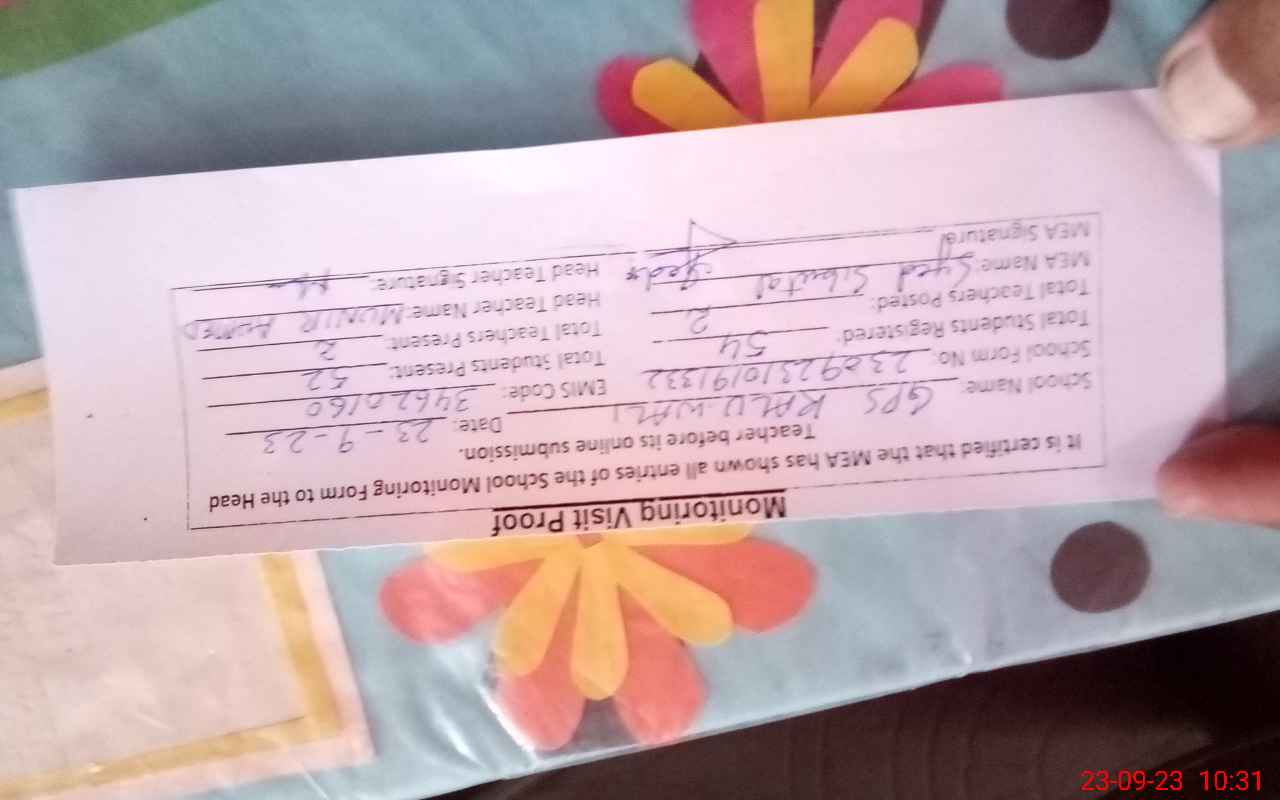 Monitoring Visit Proof
It is certified that the MEA has shown all entries of the School Monitoring Form to the Head
Teacher before its online submission.
Date: 23-9-23
School Name: GPS KALU WALI
EMIS Code: 34620160
School Form No:
Total Students Present: 52
Total Students Registered: 54
Total Teachers Present: 2
Total Teachers Posted: 2
Head Teacher Name: MUNIR AHMED
MEA Name: Syed
Head Teacher Signature:
MEA Signature:
23-09-23 10:31